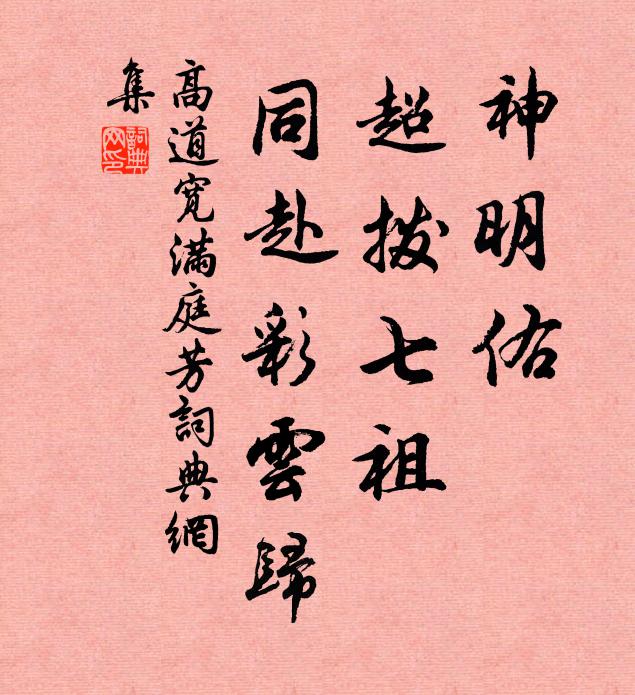 神明佑
超拔七祖
同赴彩雲歸
高道寬滿庭芳詞典網
集
詞典網印